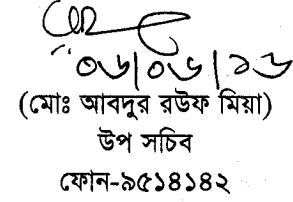 ০৬/০৬/১৬
(মোঃ আবদুর রউফ মিয়া)
উপ সচিব
ফোন-৯৫১৪১৪২